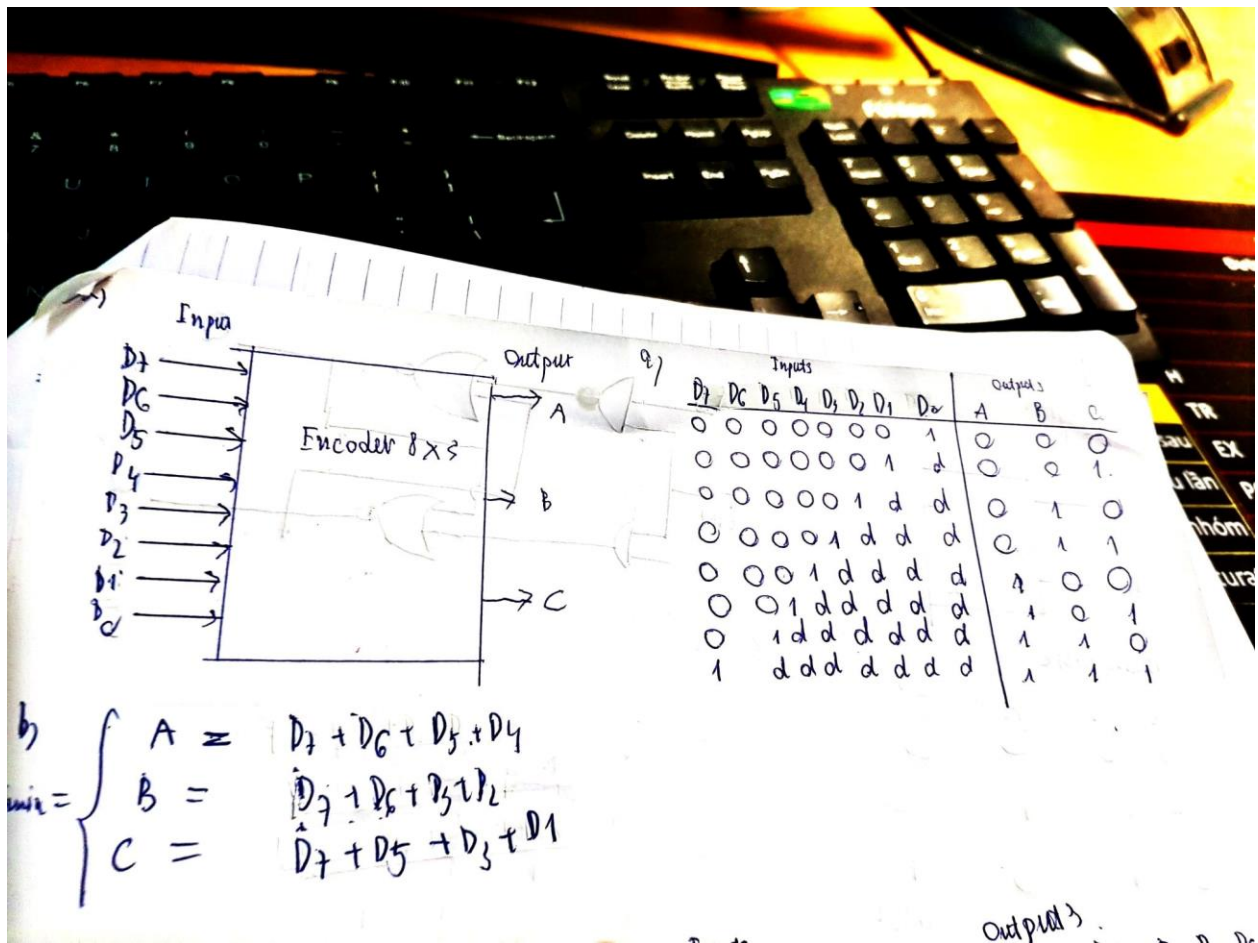 7 8 9 0 Backspace
U I O P { }
[ ]
Insert End
TR
sau EX
lần
nhóm
Input
D7
D6
D5
D4
D3
D2
D1
Encoder 8x3
Output
A
B
C
a)
Inputs Outputs
D7 D6 D5 D4 D3 D2 D1 D0 A B C
0 0 0 0 0 0 0 1 0 0 0
0 0 0 0 0 0 1 d 0 0 1
0 0 0 0 0 1 d d 0 1 0
0 0 0 0 1 d d d 0 1 1
0 0 0 1 d d d d 1 0 0
0 0 1 d d d d d 1 0 1
0 1 d d d d d d 1 1 0
1 d d d d d d d 1 1 1
b)
A = D7 + D6 + D5 + D4
B = D7 + D6 + D3 + D2
C = D7 + D5 + D3 + D1
Outputs